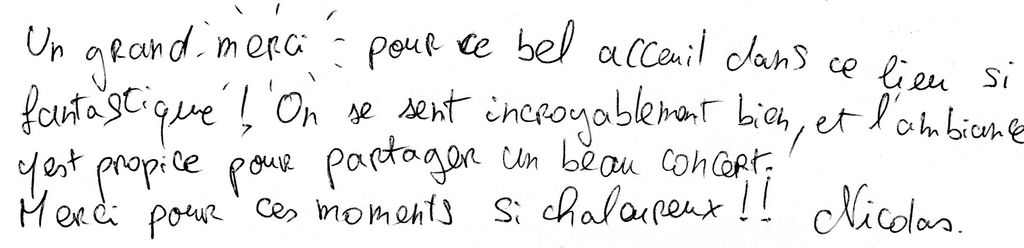 Un grand - merci - pour ce bel acceuil dans ce lieu si
fantastique ! On se sent incroyablement bien, et l'ambiance
y est propice pour partager un beau concert.
Merci pour ces moments si chaleureux !! Nicolas.